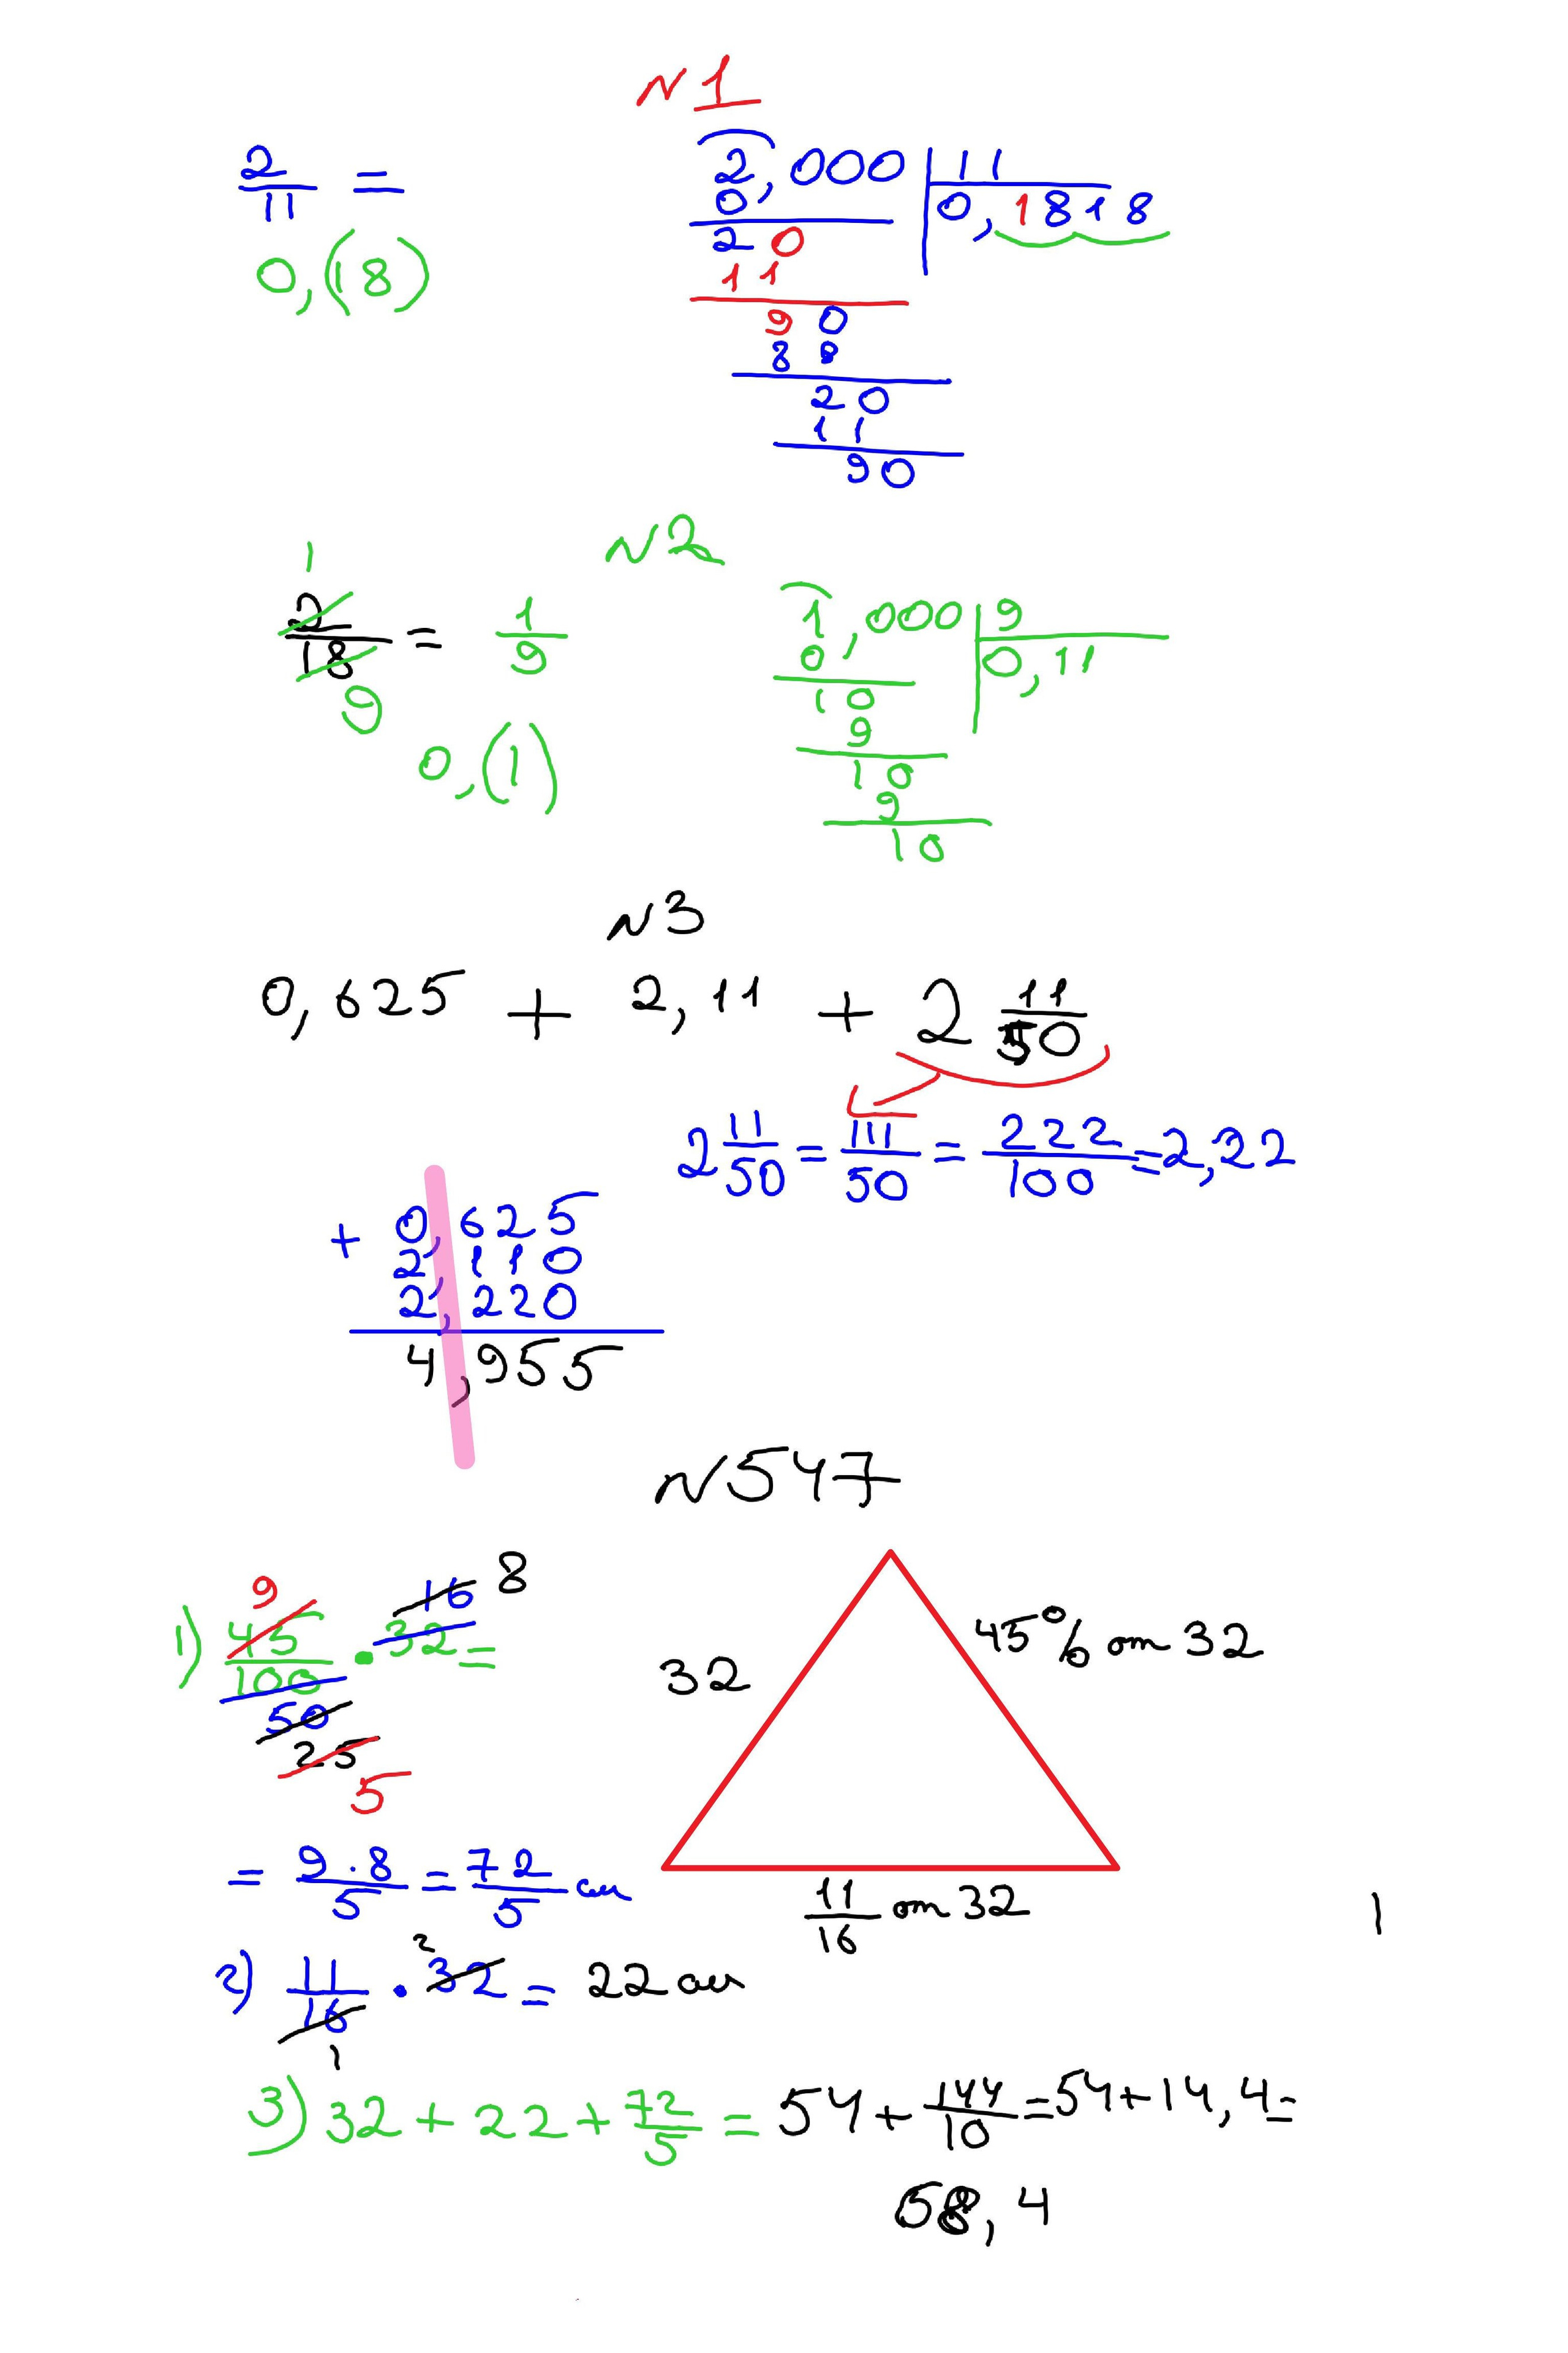 N1
2/11 =
0,(18)
2,000 | 11
0, | 0,1818
20
11
90
88
20
11
90
N2
2/18 = 1/9
1
9
0,(1)
1,000 | 9
0, | 0,11
10
9
10
9
10
N3
0,625 + 2,11 + 2 11/50
2 11/50 = 111/50 = 222/100 = 2,22
+ 0,625
2,110
2,220
4,955
N547
1) 45/100 · 32 =
9
16 8
50
25
5
= 9·8/5 = 72/5 см
32
45% от 32
11/16 от 32
1
2) 11/16 · 32 = 22 см
2
1
3) 32 + 22 + 72/5 = 54 + 144/10 = 54 + 14,4 =
58,4